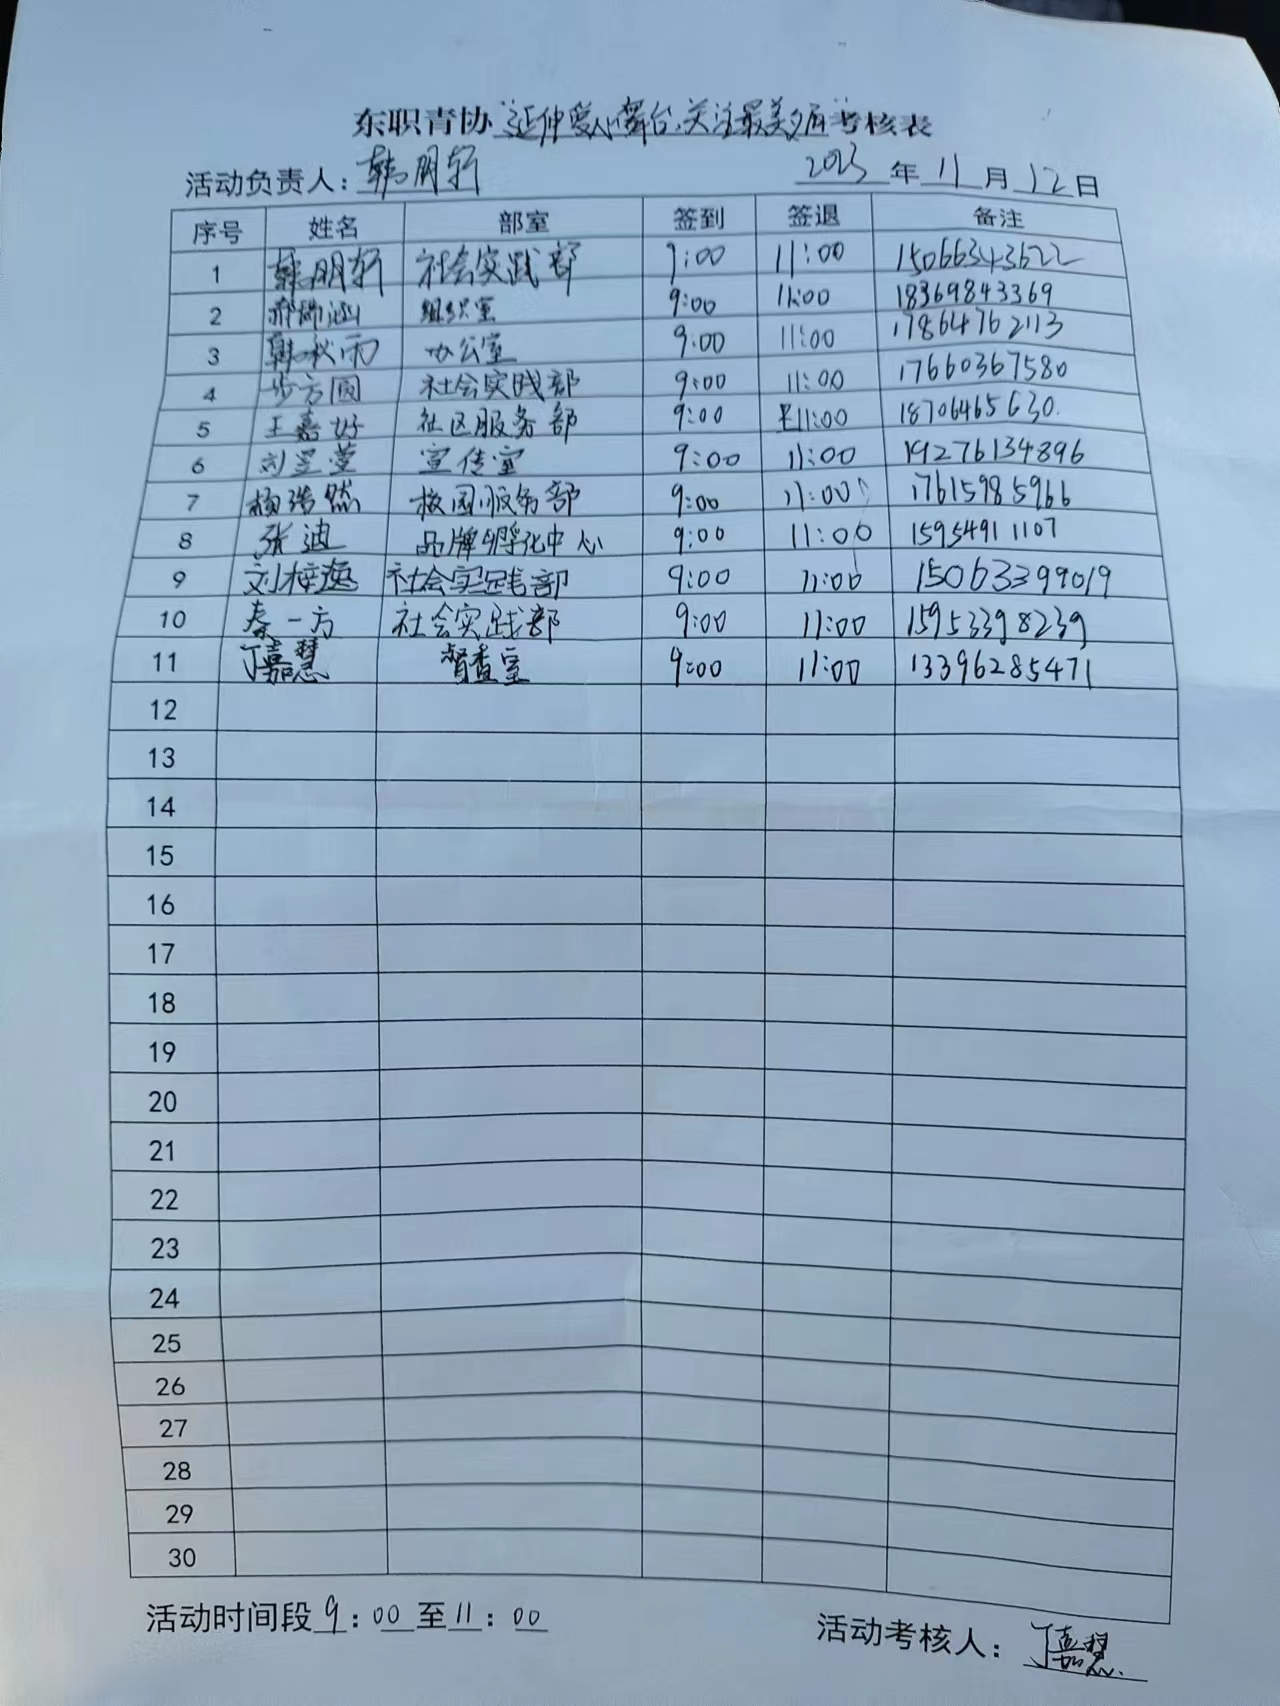 东职青协“延伸爱心舞台、关注最美夕阳”考核表
活动负责人：韩明轩 2023年11月12日
序号 姓名 部室 签到 签退 备注
1 韩明轩 社会实践部 9:00 11:00 15066343622
2 组织室 9:00 11:00 18369843369
3 韩秋雨 办公室 9:00 11:00 17864762113
4 步方圆 社会实践部 9:00 11:00 17660367580
5 王嘉好 社区服务部 9:00 11:00 18706465630.
6 刘昱莹 宣传室 9:00 11:00 19276134896
7 杨浩然 校园服务部 9:00 11:00 17615985966
8 张迪 品牌孵化中心 9:00 11:00 15954911107
9 刘梓逸 社会实践部 9:00 11:00 15063399019
10 秦一方 社会实践部 9:00 11:00 15953398239
11 丁嘉慧 督查室 9:00 11:00 13396285471
12
13
14
15
16
17
18
19
20
21
22
23
24
25
26
27
28
29
30
活动时间段 9:00至11:00 活动考核人：丁嘉慧